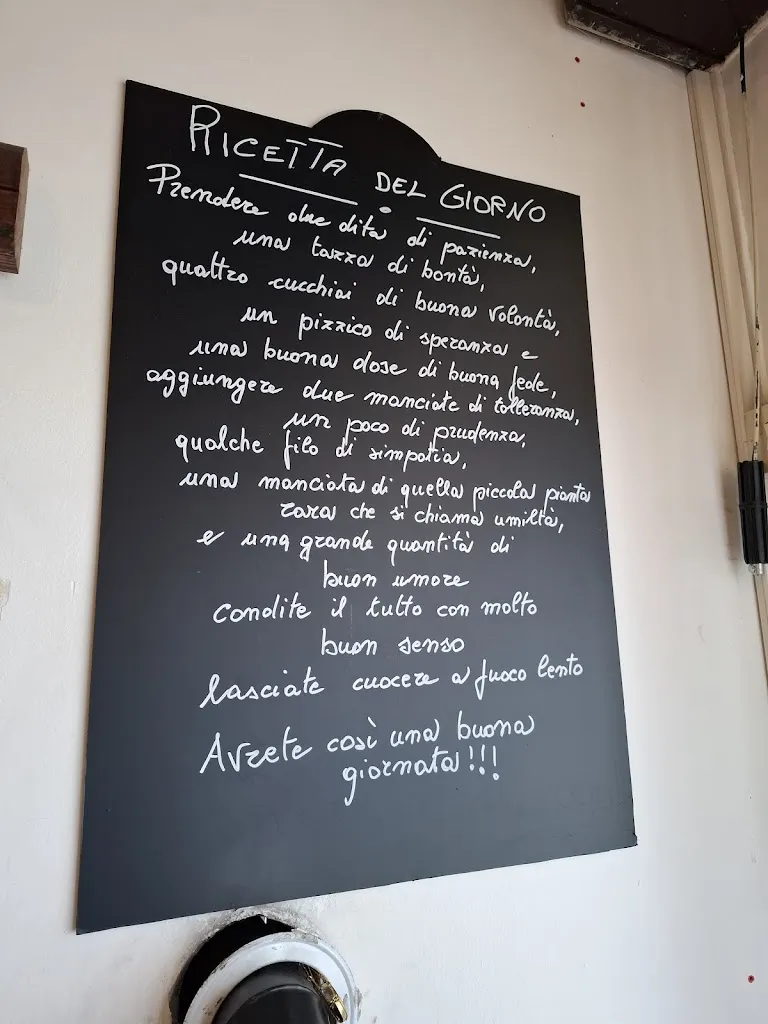 RICETTA DEL GIORNO
Prendere due dita di pazienza,
una tazza di bontà,
quattro cucchiai di buona volontà,
un pizzico di speranza e
una buona dose di buona fede,
aggiungere due manciate di tolleranza,
un poco di prudenza,
qualche filo di simpatia,
una manciata di quella piccola pianta
rara che si chiama umiltà,
e una grande quantità di
buon umore
condite il tutto con molto
buon senso
lasciate cuocere a fuoco lento
Avrete così una buona
giornata!!!